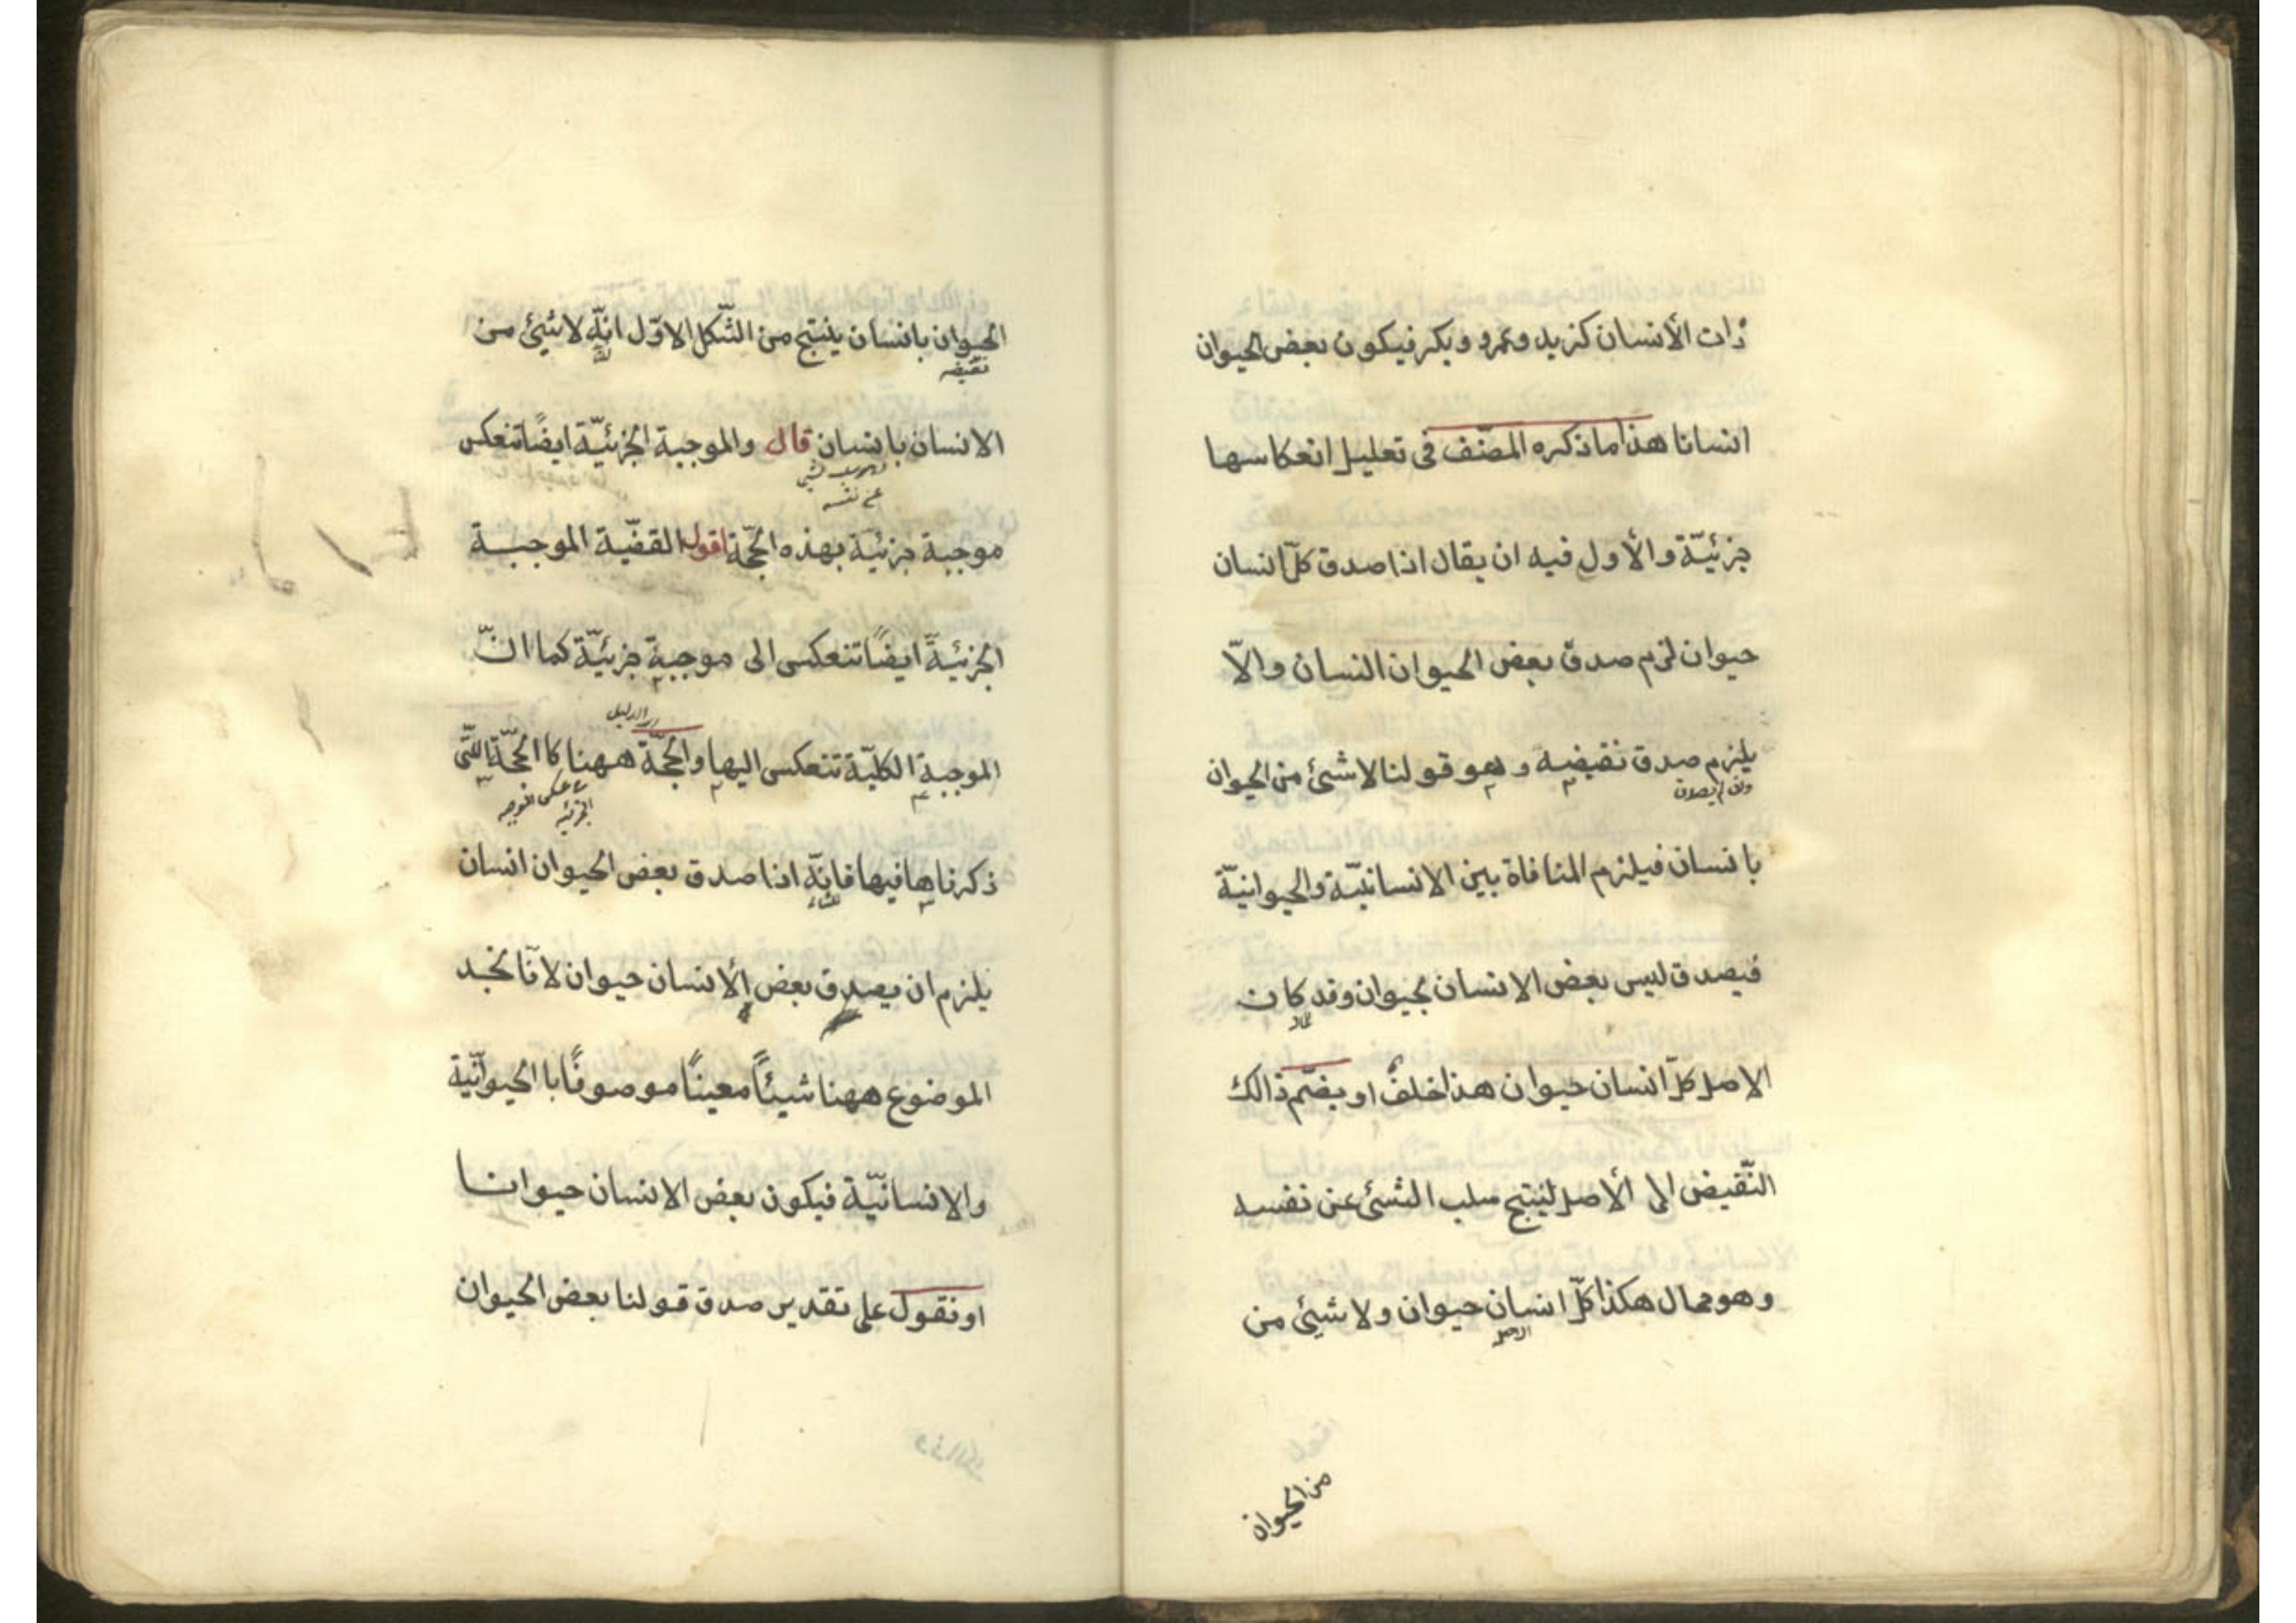 ذات الأنسان كزيد وعمرو وبكر فيكون بعض الحيوان
انسانا هذا ما ذكره المصنّف فى تعليل انعكاسها
جزئيّة والأولى فيه ان يقال اذا صدق كلّ انسان
حيوان لزم صدق بعض الحيوان النسان والاّ
يلزم صدق نقيضه وهو قولنا لا شئ من الحيوان
وان لم يصدق
بانسان فيلزم المنافاة بين الانسانيّة والحيوانيّة
فيصدق ليس بعض الانسان بحيوان وقد كان
الاصل كلّ انسان حيوان هذا خلفٌ او يضمّ ذالك
النّقيض الى الأصل لينتج سلب الشئ عن نفسه
وهو محال هكذا كلّ انسان حيوان ولا شيئ من
الاصل
من الحيوان
الحيوان بانسان ينتج من الشّكل الاوّل انّه لا شيئ من
نقيضه
الانسان بانسان قال والموجبة الجزئيّة ايضًا تنعكس
سلب الشئ
عن نفسه
موجبة جزئيّة بهذه الحجّة اقول القضيّة الموجبة
الجزئيّة ايضًا تنعكس الى موجبة جزئيّة كما انّ
الدليل
الموجبة الكليّة تنعكس اليها والحجّة ههنا كا الحجّة الّتى
عكس الموجبه
الجزئيه
ذكرناها فيها فانّه اذا صدق بعض الحيوان انسان
يلزم ان يصدق بعض الأنسان حيوان لانّا نجد
الموضوع ههنا شيئًا معينًا موصوفًا با الحيوانّية
والانسانيّة فيكون بعض الانسان حيوانا
او نقول على تقدير صدق قولنا بعض الحيوان